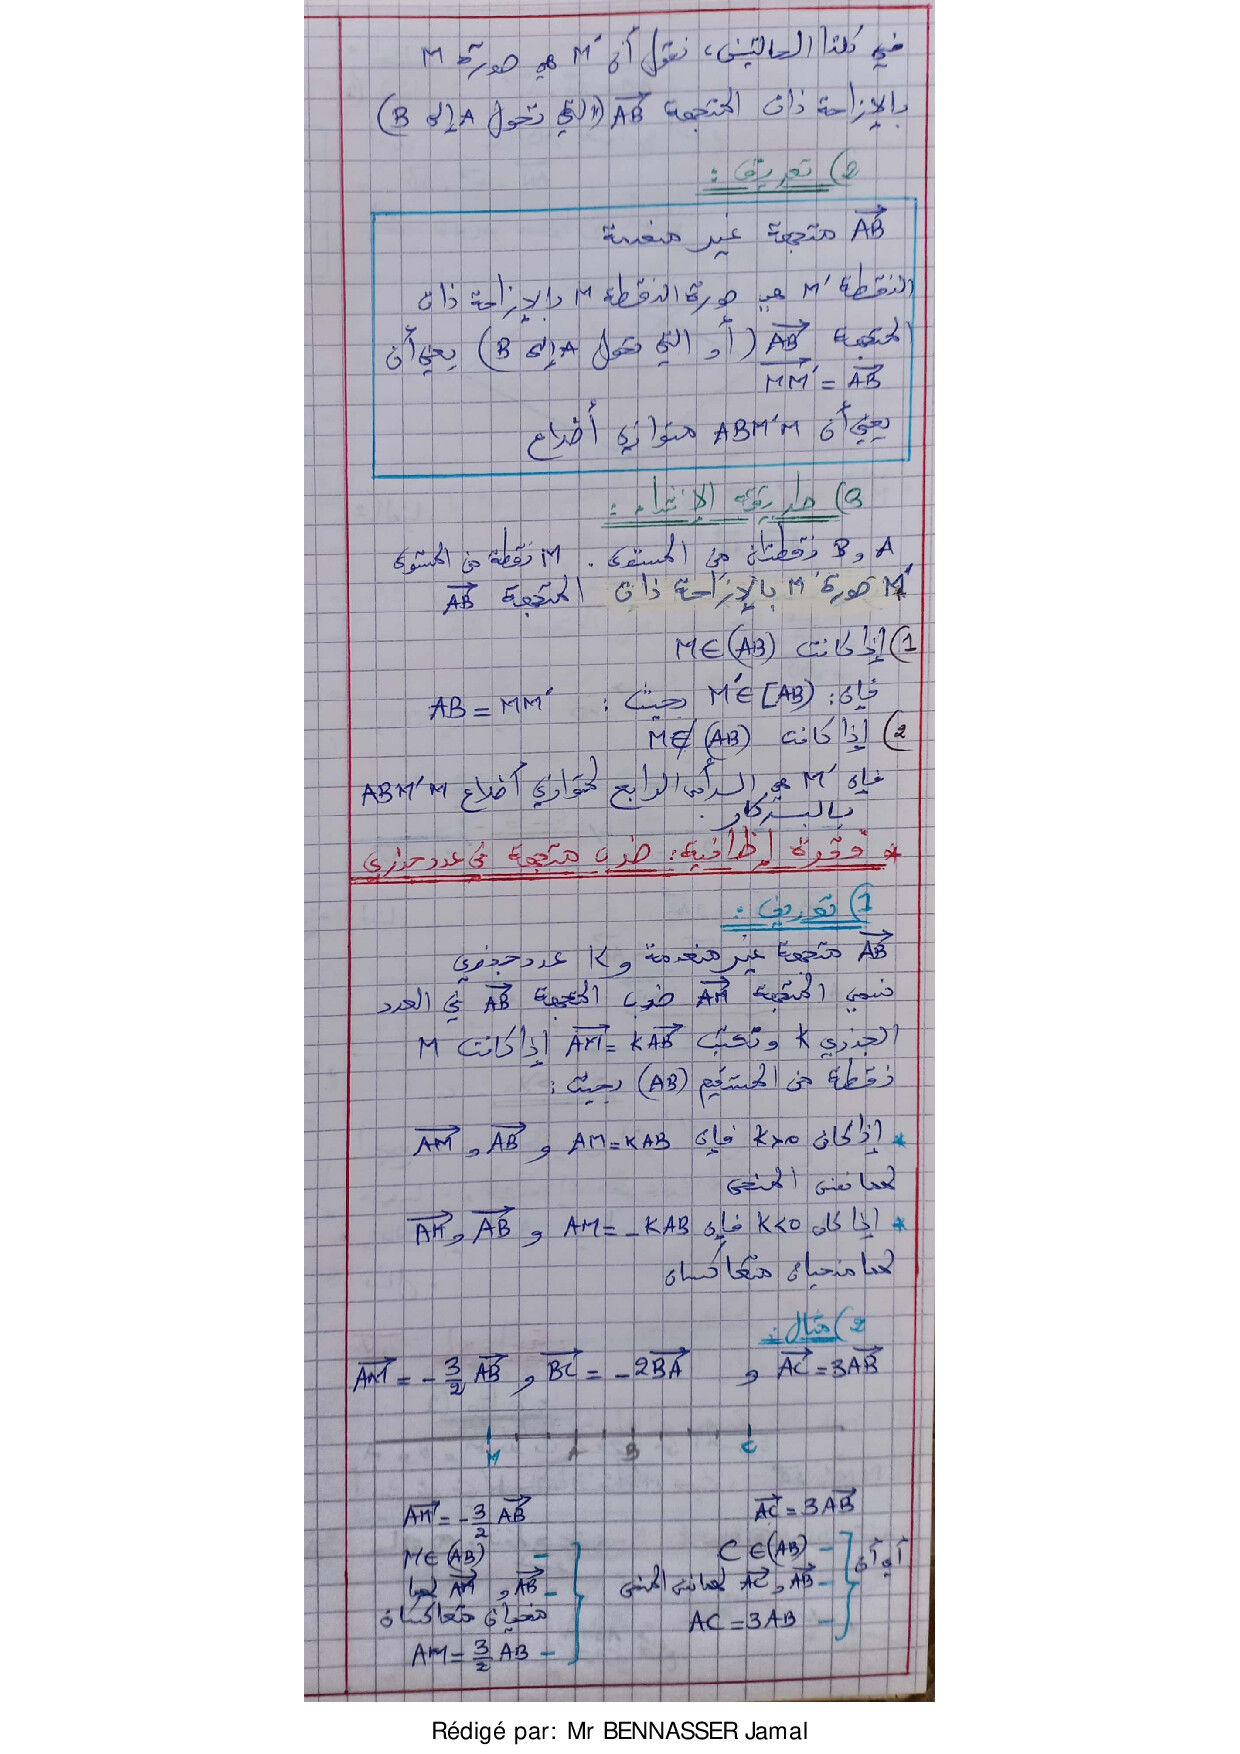 في كلتا الحالتين، نقول أن M' هي صورة M
بالإزاحة ذات المتجهة AB (التي تحول A إلى B)
2) تعريف :
AB متجهة غير منعدمة
النقطة M' هي صورة النقطة M بالإزاحة ذات
المتجهة AB (أو التي تحول A إلى B) يعني أن
MM' = AB
يعني أن ABM'M متوازي أضلاع
3) طريقة الإنشاء :
A و B نقطتان من المستوى . M نقطة من المستوى
M' صورة M بالإزاحة ذات المتجهة AB
1) إذا كانت M∈(AB)
فإن : M'∈[AB) بحيث : AB = MM'
2) إذا كانت M∉(AB)
فإن M' هي الرأس الرابع لمتوازي أضلاع ABM'M
بالبركار .
* فقرة إظافية : ضرب متجهة في عدد جذري
1) تعريف :
AB متجهة غير منعدمة و K عدد جذري
نسمي المتجهة AM ضرب المتجهة AB في العدد
الجذري K ونكتب AM = KAB إذا كانت M
نقطة من المستقيم (AB) بحيث :
* إذا كان K>0 فإن AM=KAB و AB و AM
لهما نفس المنحى
* إذا كان K<0 فإن AM=-KAB و AB و AM
لهما منحيان متعاكسان
2) مثال :
AC = 3AB و BC = -2BA و AM = -3/2 AB
M A B C
AC = 3AB
أي أن
- C∈(AB)
- AB و AC لهما نفس المنحى
- AC = 3AB
AM = -3/2 AB
- M∈(AB)
- AB و AM لهما
منحيان متعاكسان
- AM = 3/2 AB
Rédigé par: Mr BENNASSER Jamal